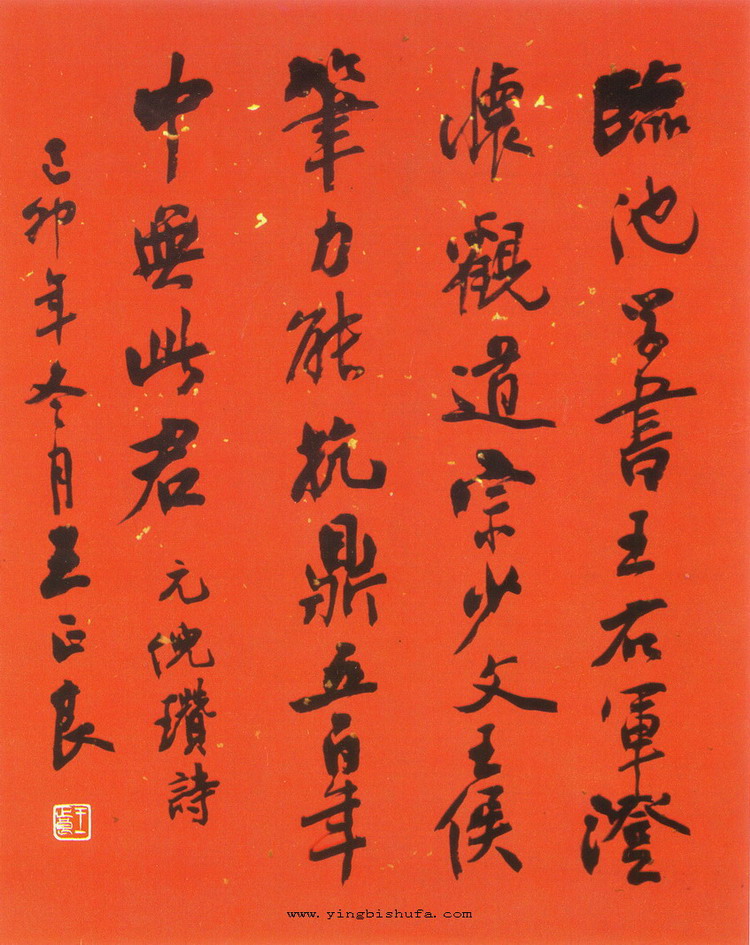 臨池學書王右軍澄
懷觀道宗少文王侯
筆力能抗鼎五百年
中無此君元倪瓚詩
己卯年冬月王正良
www.yingbishufa.com